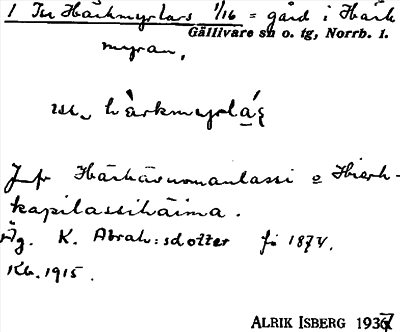 1 Tu Härkmyrlars 1/16 = gård i Härk
Gällivare sn o. tg, Norrb. l.
myran,
härkmyrla
Jfr Härkävuomanlassi o Hiärk-
kapilassihäima.
Äg. K. Abrah:sdotter fö 1874.
Kb. 1915.
ALRIK ISBERG 1937